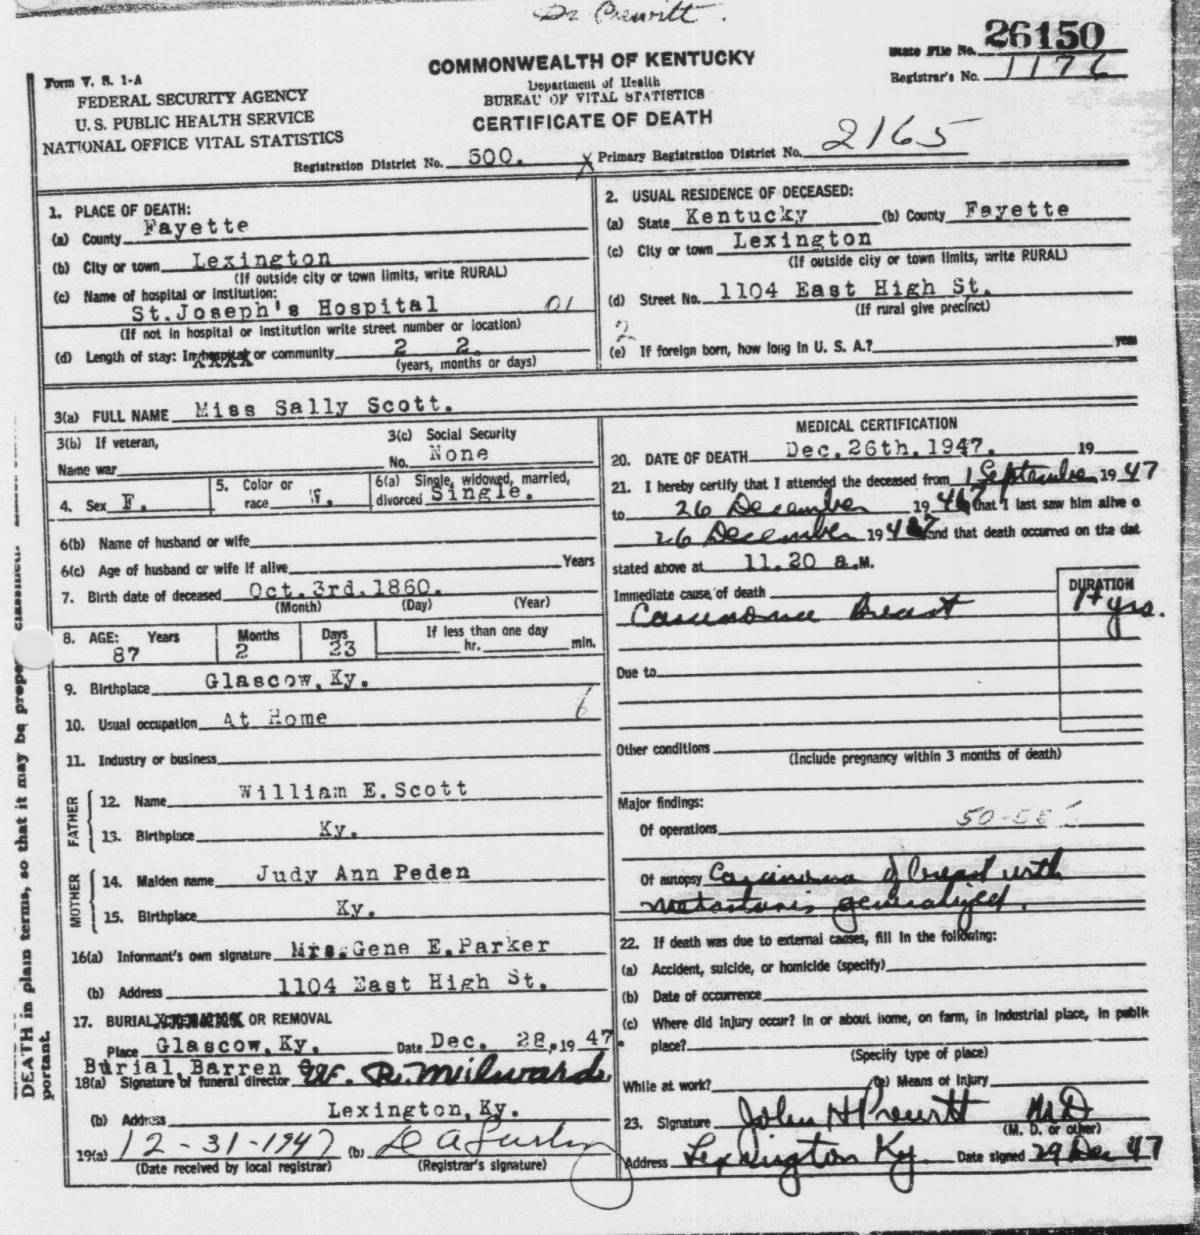 Dr Prewitt.
COMMONWEALTH OF KENTUCKY
State File No. 26150
Registrar's No. 1176
Form V. S. 1-A
FEDERAL SECURITY AGENCY
U.S. PUBLIC HEALTH SERVICE
NATIONAL OFFICE VITAL STATISTICS
Department of Health
BUREAU OF VITAL STATISTICS
CERTIFICATE OF DEATH
Registration District No. 500. X Primary Registration District No. 2165
1. PLACE OF DEATH:
(a) County Fayette
(b) City or town Lexington
(If outside city or town limits, write RURAL)
(c) Name of hospital or institution:
St.Joseph's Hospital 01
(If not in hospital or institution write street number or location)
(d) Length of stay: In hospital or community 2 2.
(years, months or days)
2. USUAL RESIDENCE OF DECEASED:
(a) State Kentucky (b) County Fayette
(c) City or town Lexington
(If outside city or town limits, write RURAL)
(d) Street No. 1104 East High St.
(If rural give precinct)
2
(e) If foreign born, how long in U. S. A.? years
3(a) FULL NAME Miss Sally Scott.
3(b) If veteran,
Name war
3(c) Social Security
No. None
4. Sex F.
5. Color or
race W.
6(a) Single, widowed, married,
divorced Single.
6(b) Name of husband or wife
6(c) Age of husband or wife if alive Years
7. Birth date of deceased Oct. 3rd. 1860.
(Month) (Day) (Year)
8. AGE: Years Months Days If less than one day
87 2 23 hr. min.
9. Birthplace Glascow, Ky.
10. Usual occupation At Home 6
11. Industry or business
FATHER
12. Name William E.Scott
13. Birthplace Ky.
MOTHER
14. Maiden name Judy Ann Peden
15. Birthplace Ky.
16(a) Informant's own signature Mrs.Gene E.Parker
(b) Address 1104 East High St.
17. BURIAL, CREMATION OR REMOVAL
Place Glascow,Ky. Date Dec. 28, 19 47.
Burial, Barren
18(a) Signature of funeral director R. Milward
(b) Address Lexington,Ky.
19(a) 12-31-1947 (b)
(Date received by local registrar) (Registrar's signature)
MEDICAL CERTIFICATION
20. DATE OF DEATH Dec.26th.1947. 19
21. I hereby certify that I attended the deceased from 1 September 19 47
to 26 December 19 47 that I last saw him alive o
26 December 19 47 and that death occurred on the dat
stated above at 11.20 a.M.
Immediate cause of death DURATION
Carcinoma breast 1+ yrs.
Due to
Other conditions
(Include pregnancy within 3 months of death)
Major findings:
Of operations 50-58
Of autopsy Carcinoma of breast with
metastasis generalized.
22. If death was due to external causes, fill in the following:
(a) Accident, suicide, or homicide (specify)
(b) Date of occurrence
(c) Where did injury occur? In or about home, on farm, in industrial place, in public
place?
(Specify type of place)
While at work? (e) Means of Injury
23. Signature John H Prewitt M.D
(M. D. or other)
Address Lexington Ky Date signed 29 Dec 47
DEATH in plain terms, so that it may be prope classified.
portant.